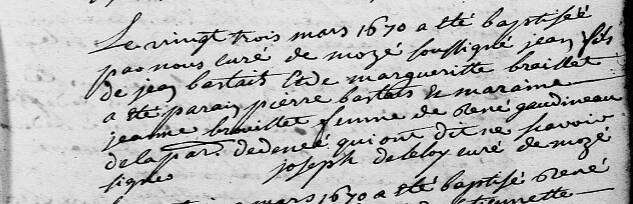 Le vingt trois mars 1670 a été baptiseé
par nous curé de mozé soussigné jean fils
de jean bastais et de margueritte braillet
a été parain pierre bastais & maraine
jeanne brouillet femme de René gaudineau
de la par. de deneé qui ont dit ne scavoir
signe joseph deleloy curé de mozé
mars 1670 a été baptisé René